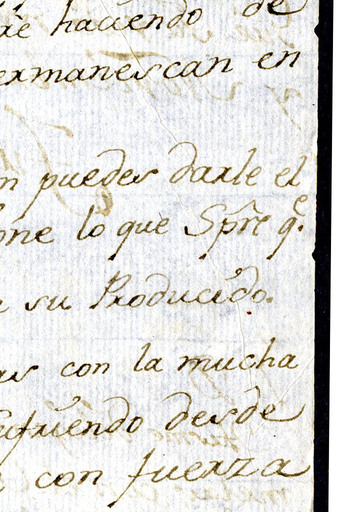 haciendo de
ermanescan en
n puedes darle el
one lo que Spre. q.e
su Producido.
as con la mucha
ufriendo desde
con fuerza